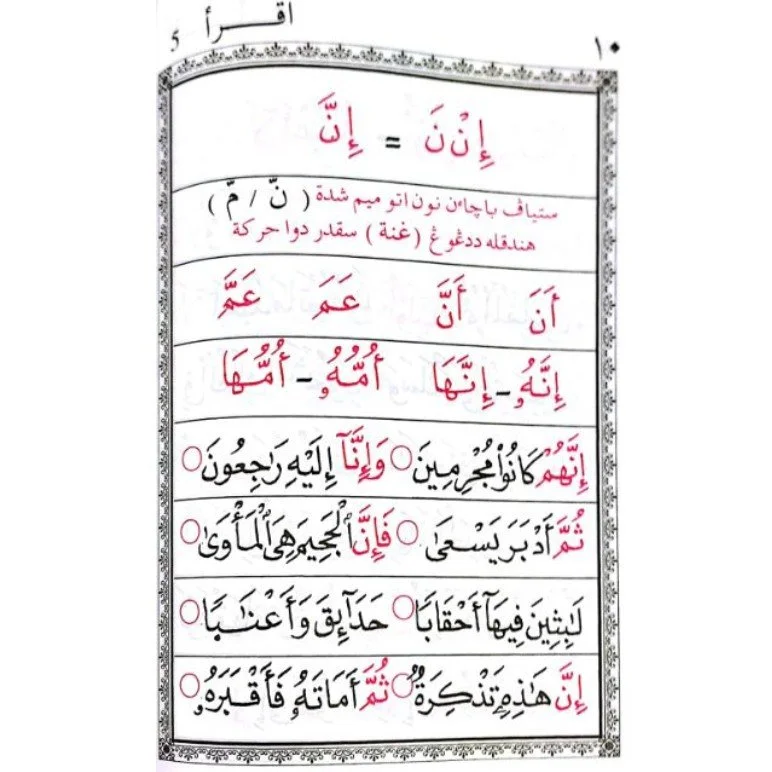 اقرأ 5
١٠
إِنْ نَ = إِنَّ
ستياڤ باچاءن نون اتو ميم شدة ( نّ / مّ )
هندقله ددڠوڠ (غنة) سقدر دوا حركة
أَنَ أَنَّ عَمَ عَمَّ
إِنَّهُۥ - إِنَّهَا أُمُّهُۥ - أُمُّهَا
إِنَّهُمْ كَانُوا۟ مُجْرِمِينَ ○ وَإِنَّآ إِلَيْهِ رَاجِعُونَ ○
ثُمَّ أَدْبَرَ يَسْعَىٰ ○ فَإِنَّ ٱلْجَحِيمَ هِىَ ٱلْمَأْوَىٰ ○
لَـٰبِثِينَ فِيهَآ أَحْقَابًا ○ حَدَآئِقَ وَأَعْنَـٰبًا ○
إِنَّ هَـٰذِهِۦ تَذْكِرَةٌ ○ ثُمَّ أَمَاتَهُۥ فَأَقْبَرَهُۥ ○